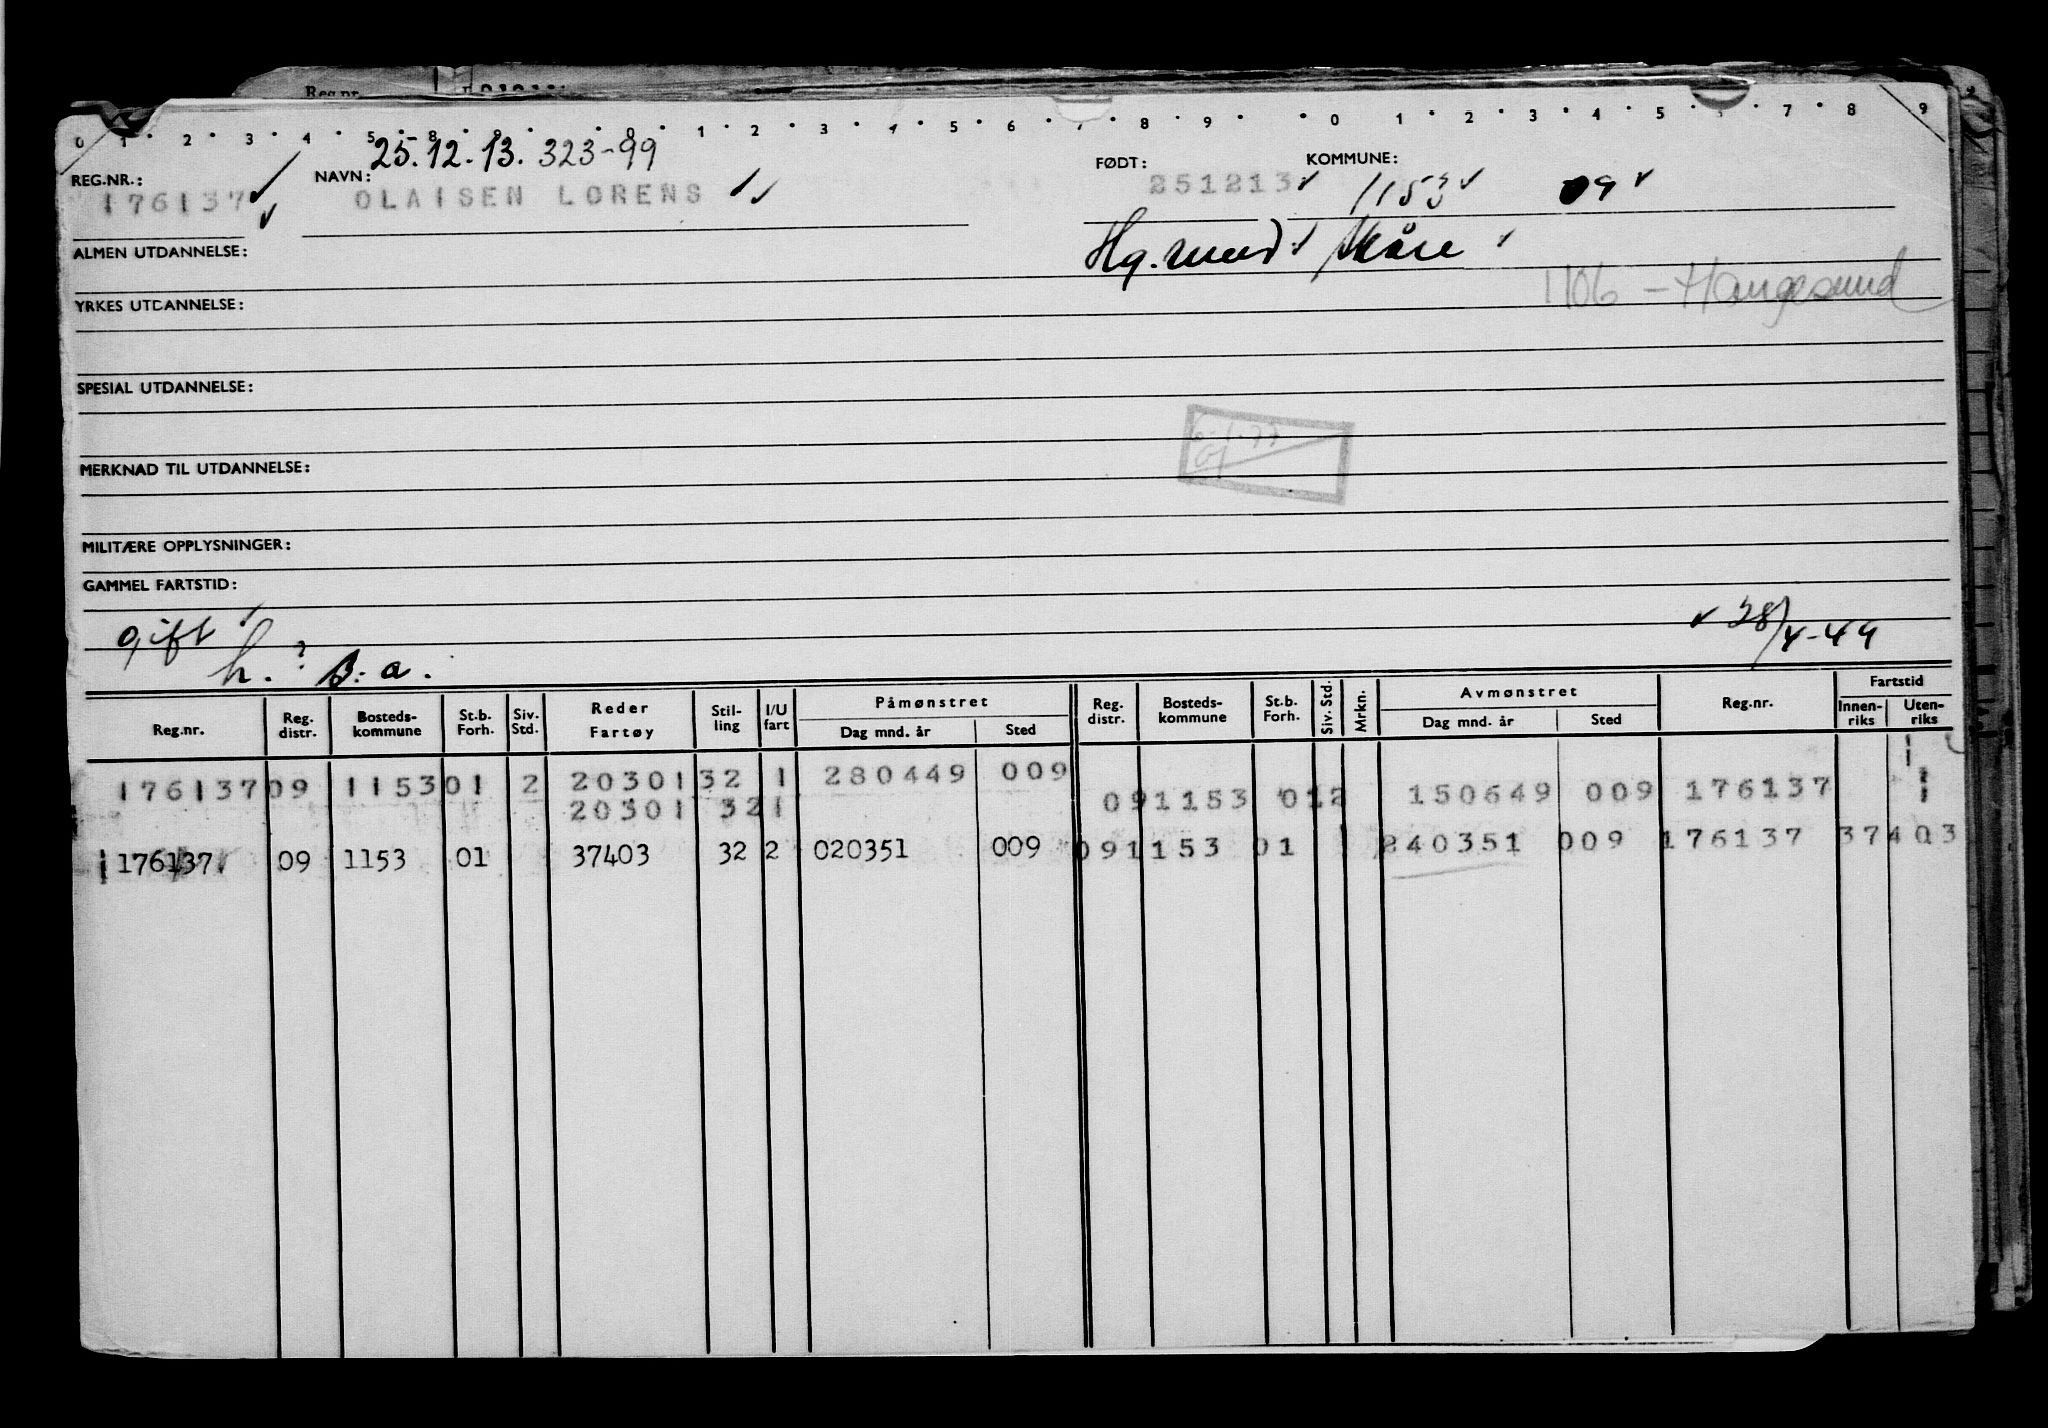 Reg.nr.
0 1 2 3 4 5 8 9 0 1 2 3 4 5 6 7 8 9 0 1 2 3 4 5 7 8 9
25.12.13. 323-99
REG.NR.: NAVN: FØDT: KOMMUNE:
176137 OLAISEN LORENS 251213 1153 09
ALMEN UTDANNELSE: Hg.sund Skåre
1106 - Haugesund
YRKES UTDANNELSE:
SPESIAL UTDANNELSE:
MERKNAD TIL UTDANNELSE:
MILITÆRE OPPLYSNINGER:
GAMMEL FARTSTID:
gift 28/4-49
h. ? B: a.
Reg.nr. Reg. distr. Bosteds-kommune St.b. Forh. Siv. Std. Reder Fartøy Stil-ling I/U fart Påmønstret Dag mnd. år Sted Reg. distr. Bosteds-kommune St.b. Forh. Siv. Std. Mrkn. Avmønstret Dag mnd. år Sted Reg.nr. Fartstid Innen-riks Uten-riks
176137 09 1153 01 2 20301 32 1 280449 009
20301 32 1 09 1153 01 2 150649 009 176137 1
176137 09 1153 01 37403 32 2 020351 009 09 1153 01 240351 009 176137 37403